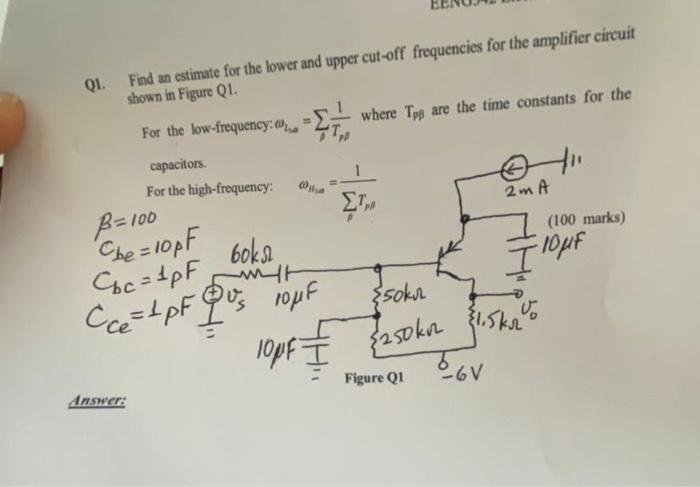 Q1. Find an estimate for the lower and upper cut-off frequencies for the amplifier circuit
shown in Figure Q1.
For the low-frequency: ω = ∑ 1/Tpβ where Tpβ are the time constants for the
capacitors.
For the high-frequency: ω = 1/∑Tpβ
(100 marks)
β=100
Cbe=10pF
Cbc=1pF
Cce=1pF
2mA
10μF
60kΩ
υs
10μF
50kΩ
250kΩ
10μF
1.5kΩ
υo
-6V
Figure Q1
Answer: